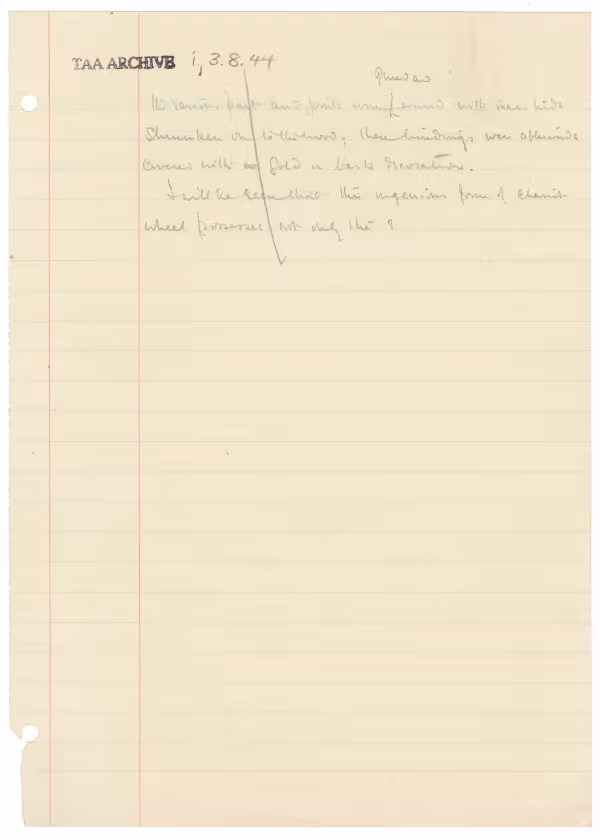 TAA ARCHIVE i, 3.8.44
The various parts and joints were bound with raw hide
shrunken on to the wood; these bindings were afterwards
covered with gold or bark decoration.
It will be seen that this ingenious form of chariot-
wheel possesses not only the ?